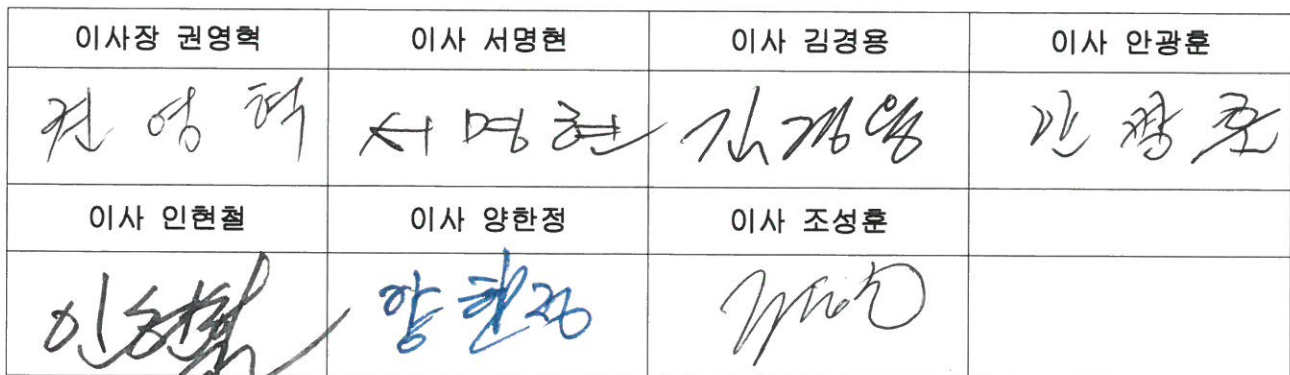 이사장 권영혁 이사 서명현 이사 김경용 이사 안광훈
권 영 혁 서 명 현 김경용 안 광 훈
이사 인현철 이사 양한정 이사 조성훈
인현철 양한정